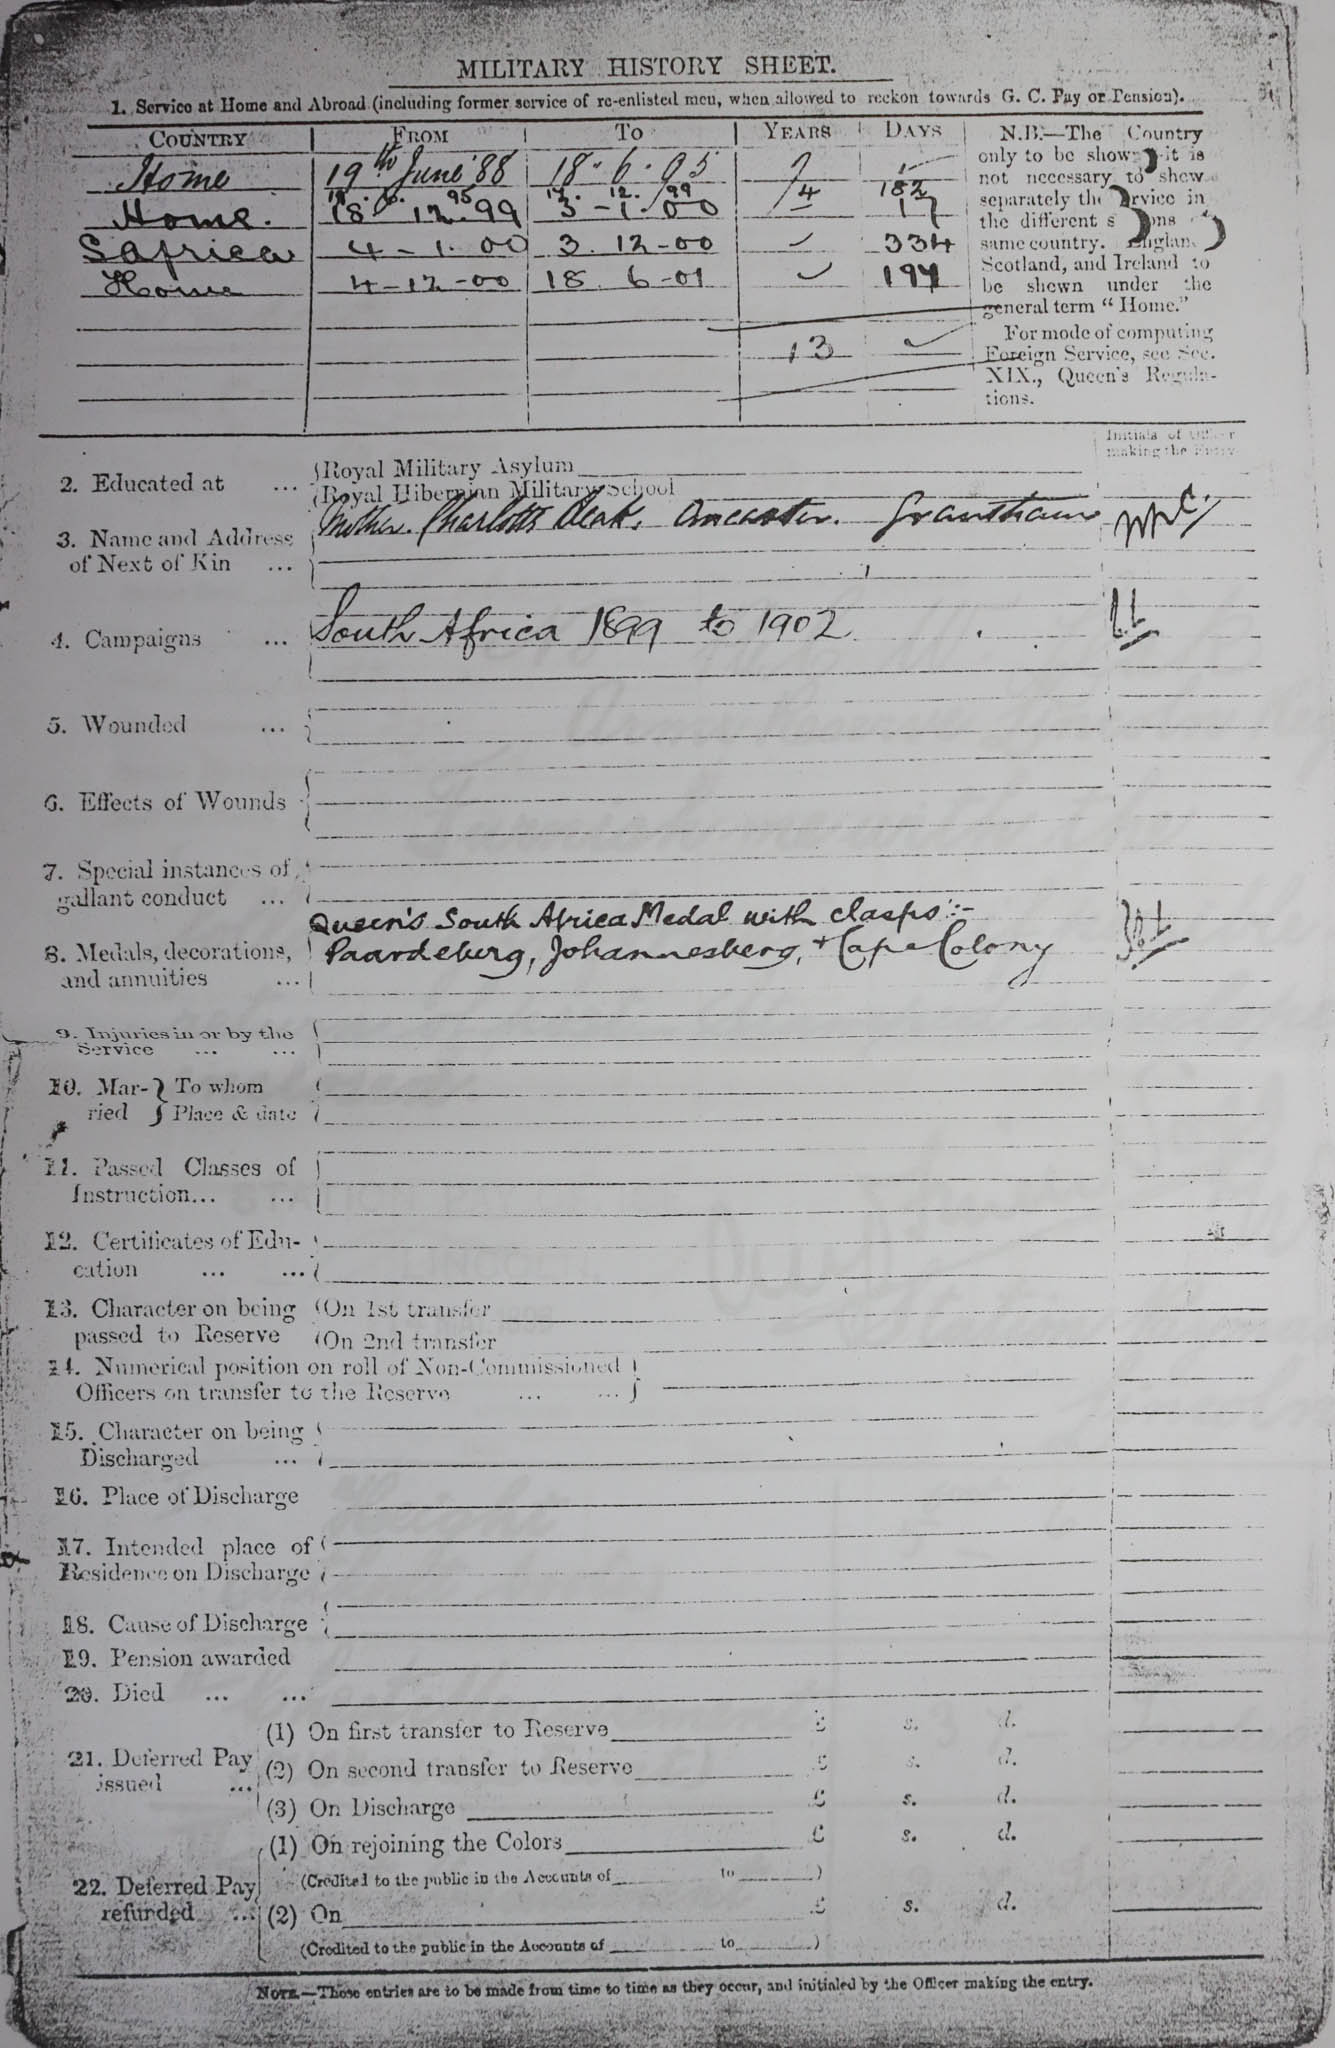 MILITARY HISTORY SHEET.
1. Service at Home and Abroad (including former service of re-enlisted men, when allowed to reckon towards G. C. Pay or Pension).
COUNTRY FROM TO YEARS DAYS
Home 19th June '88 18. 6. 95 7
19. 6. 95 17. 12. 99 4 182
Home. 18. 12. 99 3-1.00 17
S Africa 4-1.00 3.12-00 334
Home 4-12-00 18 6-01 197
13
N.B.—The Country
only to be shown it is
not necessary to shew
separately the in
the different
same country.
Scotland, and Ireland to
be shewn under the
general term "Home."
For mode of computing
Foreign Service, see Sec.
XIX., Queen's Regula-
tions.
Initials of Officer
making the Entry
2. Educated at ... Royal Military Asylum
Royal Hibernian Military School
3. Name and Address
of Next of Kin ...
Mother. Charlotte Ancaster. Grantham
4. Campaigns ... South Africa 1899 to 1902
5. Wounded ...
6. Effects of Wounds
7. Special instances of
gallant conduct ...
8. Medals, decorations,
and annuities ...
Queen's South Africa Medal with clasps:-
Paardeberg, Johannesberg, + Cape Colony
9. Injuries in or by the
Service ... ...
10. Mar- To whom
ried Place & date
11. Passed Classes of
Instruction... ...
12. Certificates of Edu-
cation ... ...
13. Character on being On 1st transfer
passed to Reserve On 2nd transfer
14. Numerical position on roll of Non-Commissioned
Officers on transfer to the Reserve ... ...
15. Character on being
Discharged ...
16. Place of Discharge
17. Intended place of
Residence on Discharge
18. Cause of Discharge
19. Pension awarded
20. Died ... ...
21. Deferred Pay
issued ...
(1) On first transfer to Reserve £ s. d.
(2) On second transfer to Reserve £ s. d.
(3) On Discharge £ s. d.
22. Deferred Pay
refunded ...
(1) On rejoining the Colors £ s. d.
(Credited to the public in the Accounts of to )
(2) On £ s. d.
(Credited to the public in the Accounts of to )
NOTE.—These entries are to be made from time to time as they occur, and initialed by the Officer making the entry.